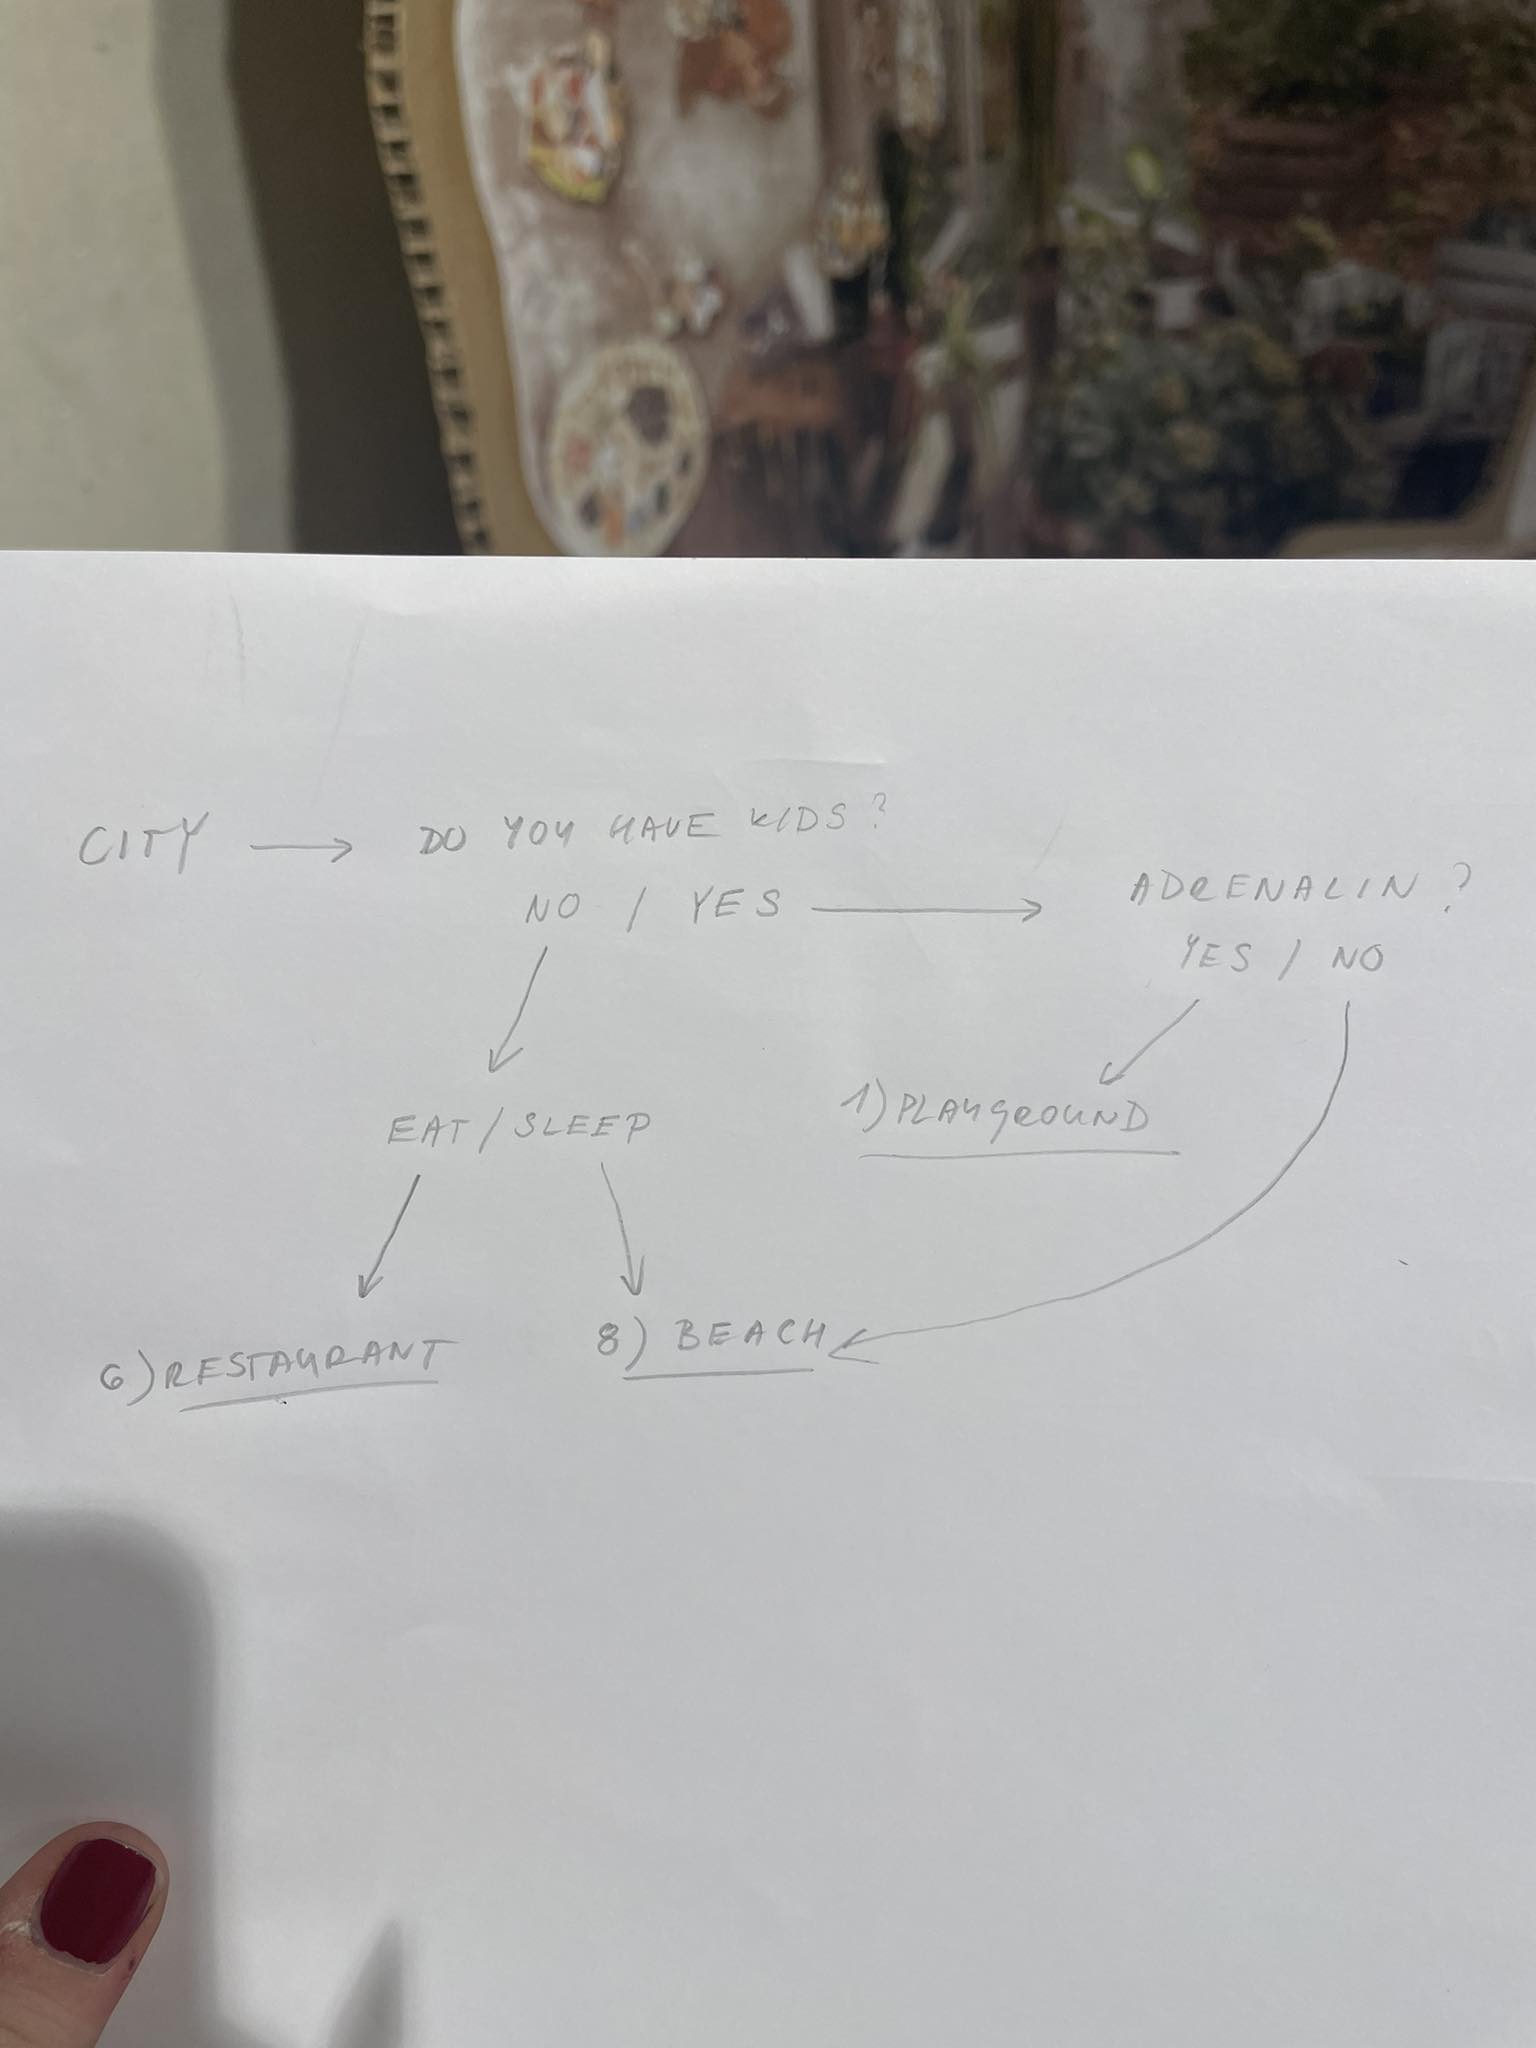 CITY → DO YOU HAVE KIDS?
NO / YES → ADRENALIN?
YES / NO
EAT / SLEEP
1) PLAYGROUND
6) RESTAURANT
8) BEACH